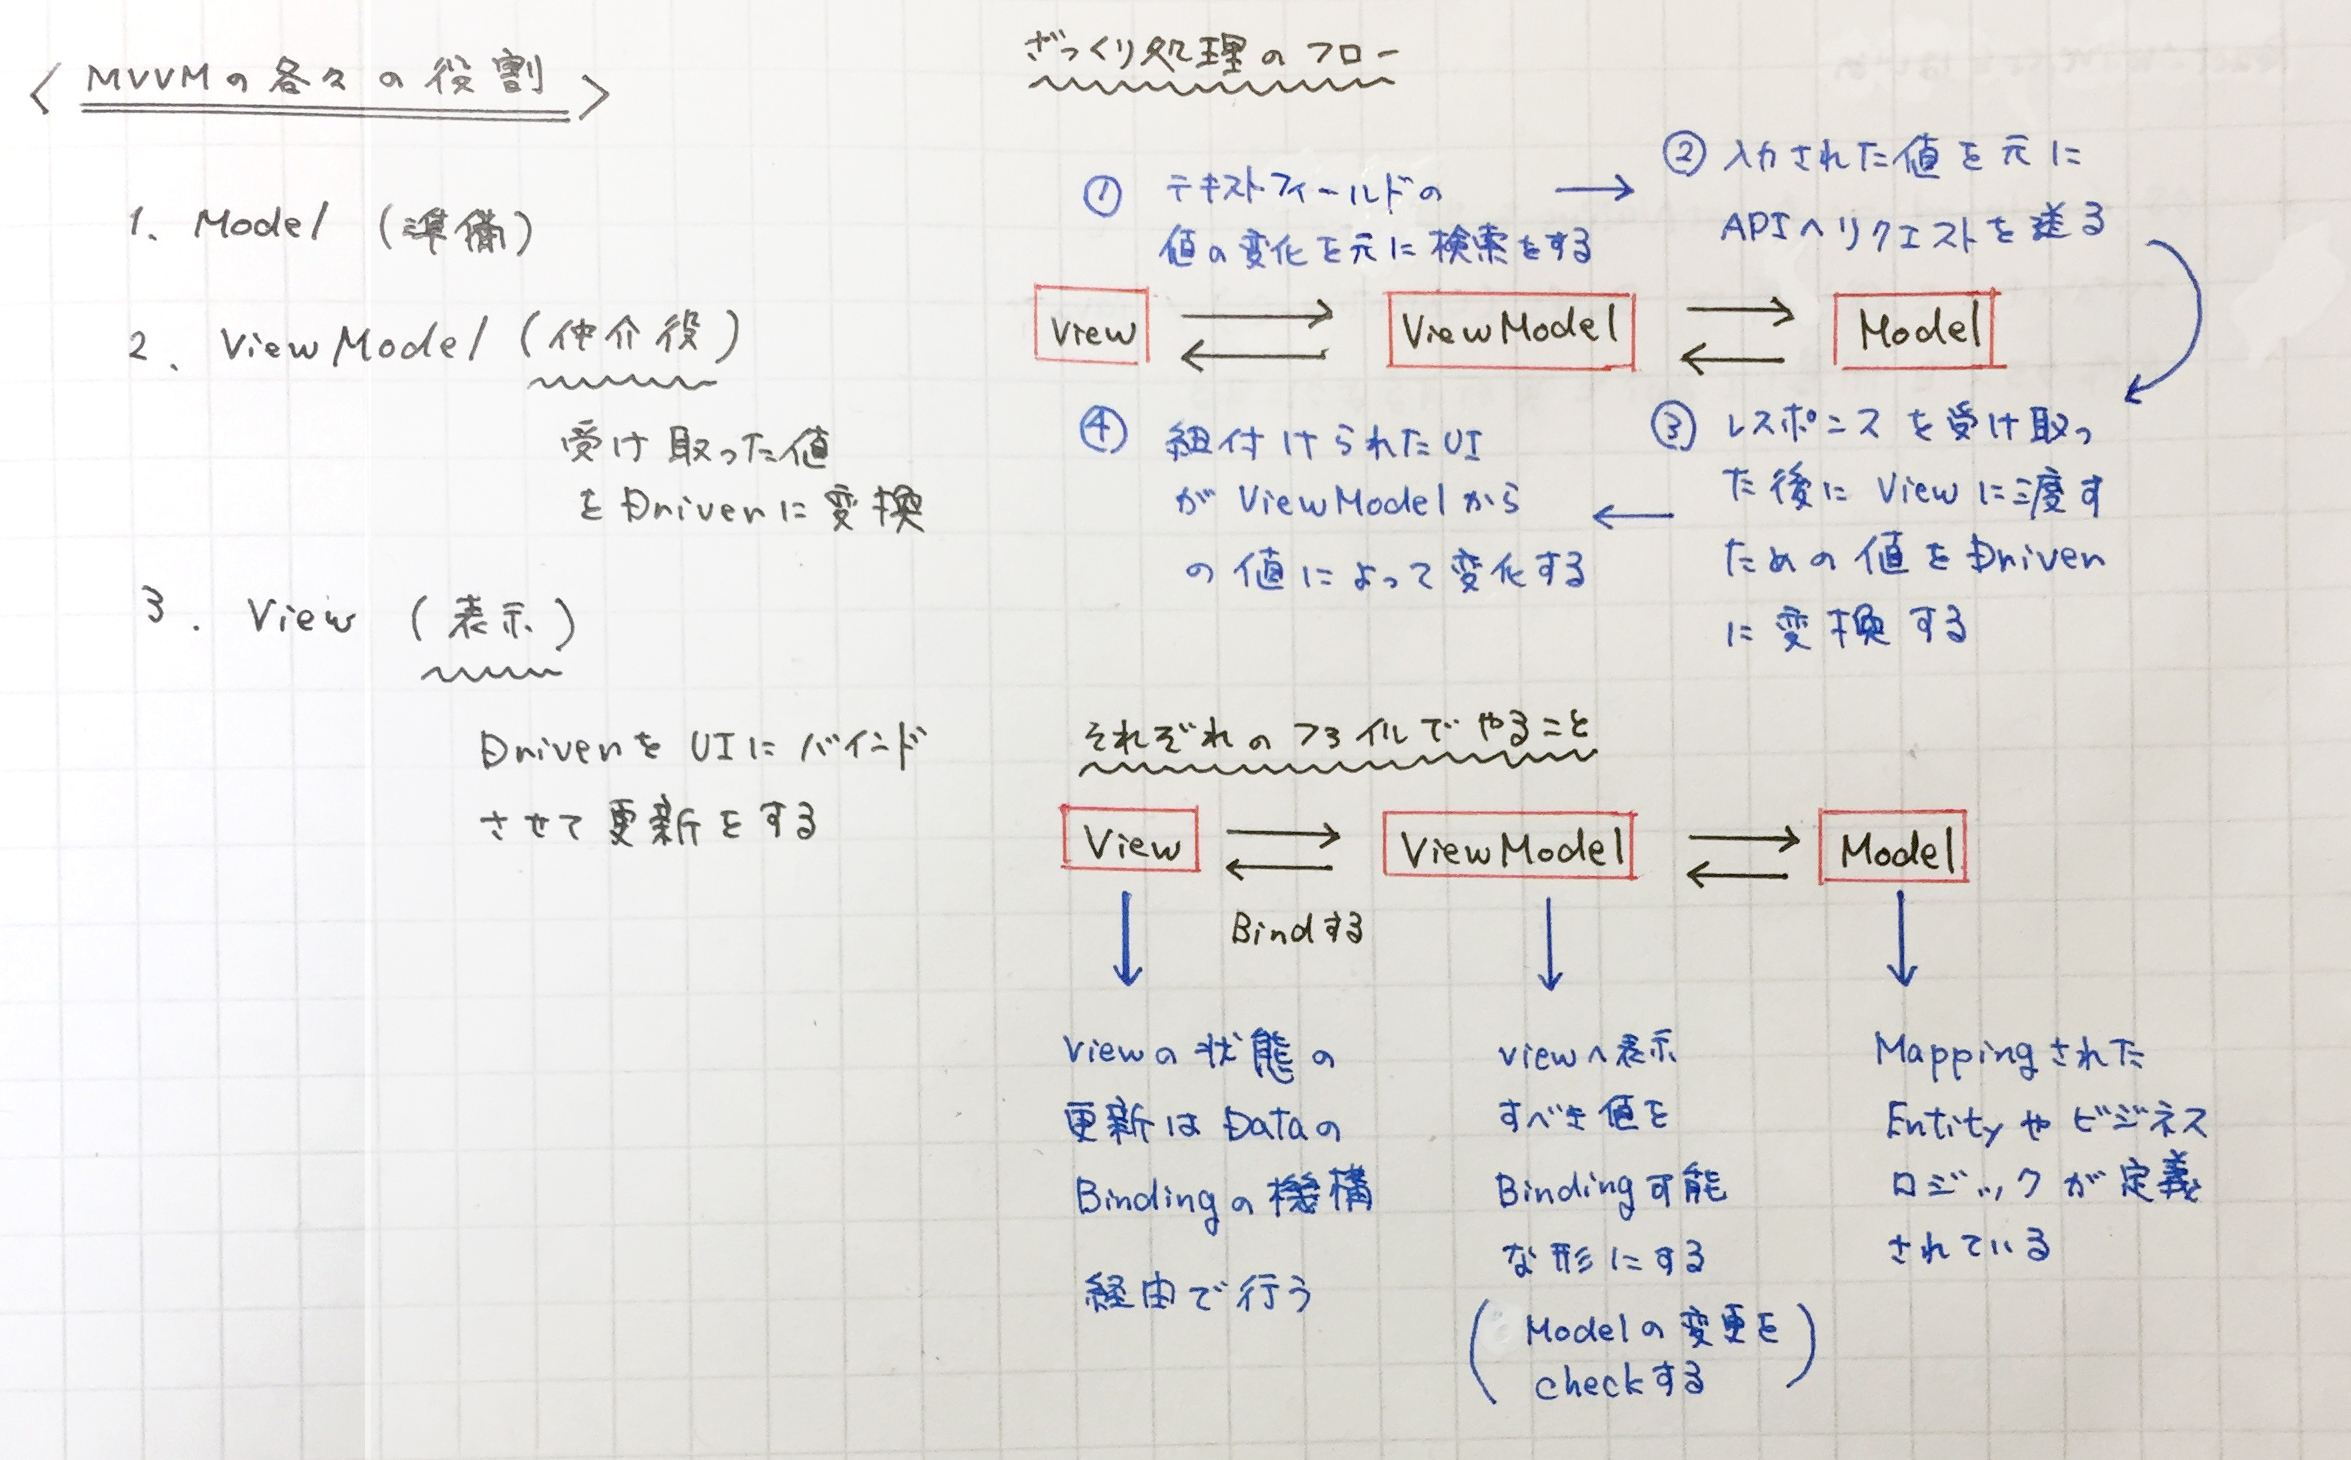 <MVVMの各々の役割>
1. Model (準備)
2. ViewModel (仲介役)
受け取った値
をDriverに変換
3. View (表示)
DriverをUIにバインド
させて更新をする
ざっくり処理のフロー
① テキストフィールドの
値の変化を元に検索をする
→
② 入力された値を元に
APIへリクエストを送る
View ⇄ ViewModel ⇄ Model
③ レスポンスを受け取っ
た後にViewに渡す
ための値をDriver
に変換する
←
④ 紐付けられたUI
がViewModelから
の値によって変化する
それぞれのファイルでやること
View ⇄ ViewModel ⇄ Model
Bindする
Viewの状態の
更新はDataの
Bindingの機構
経由で行う
viewへ表示
すべき値を
Binding可能
な形にする
(Modelの変更を
checkする)
Mappingされた
Entityやビジネス
ロジックが定義
されている